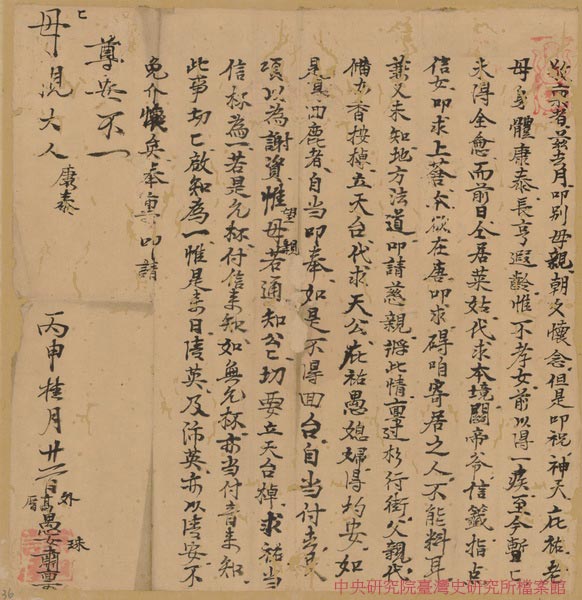 敬稟者茲去月叩別母親朝夕懷念但是叩祝神天庇祐老
母身體康泰長亨遐齡惟不孝女前以得一疾至今暫亡
未得全愈而前日仝居菜姑代求本境關帝爺信籤指点
信女叩求上蒼本欲在唐叩求碍咱寄居之人不能料耳
兼又未知地方法道叩請慈親將此情稟过杉行街父親代
俻力香按棹立天台代求天公庇祐愚媳婦得均安如
是真函鹿者自当叩奉如是不得回台自当付去銀
項以為謝資惟母若通知公亡切要立天台棹求祐当
望親
信杯為一若是允杯付信來知如無允杯亦当付音來知
此事切亡啟知為一惟是來日清英及沛英亦以清安不
免介懷矣奉稟叩請
尊安不一
亡
母親大人
康泰
丙申桂月廿一日
外
愚 稟
珠
36
中央研究院臺灣史研究所檔案館